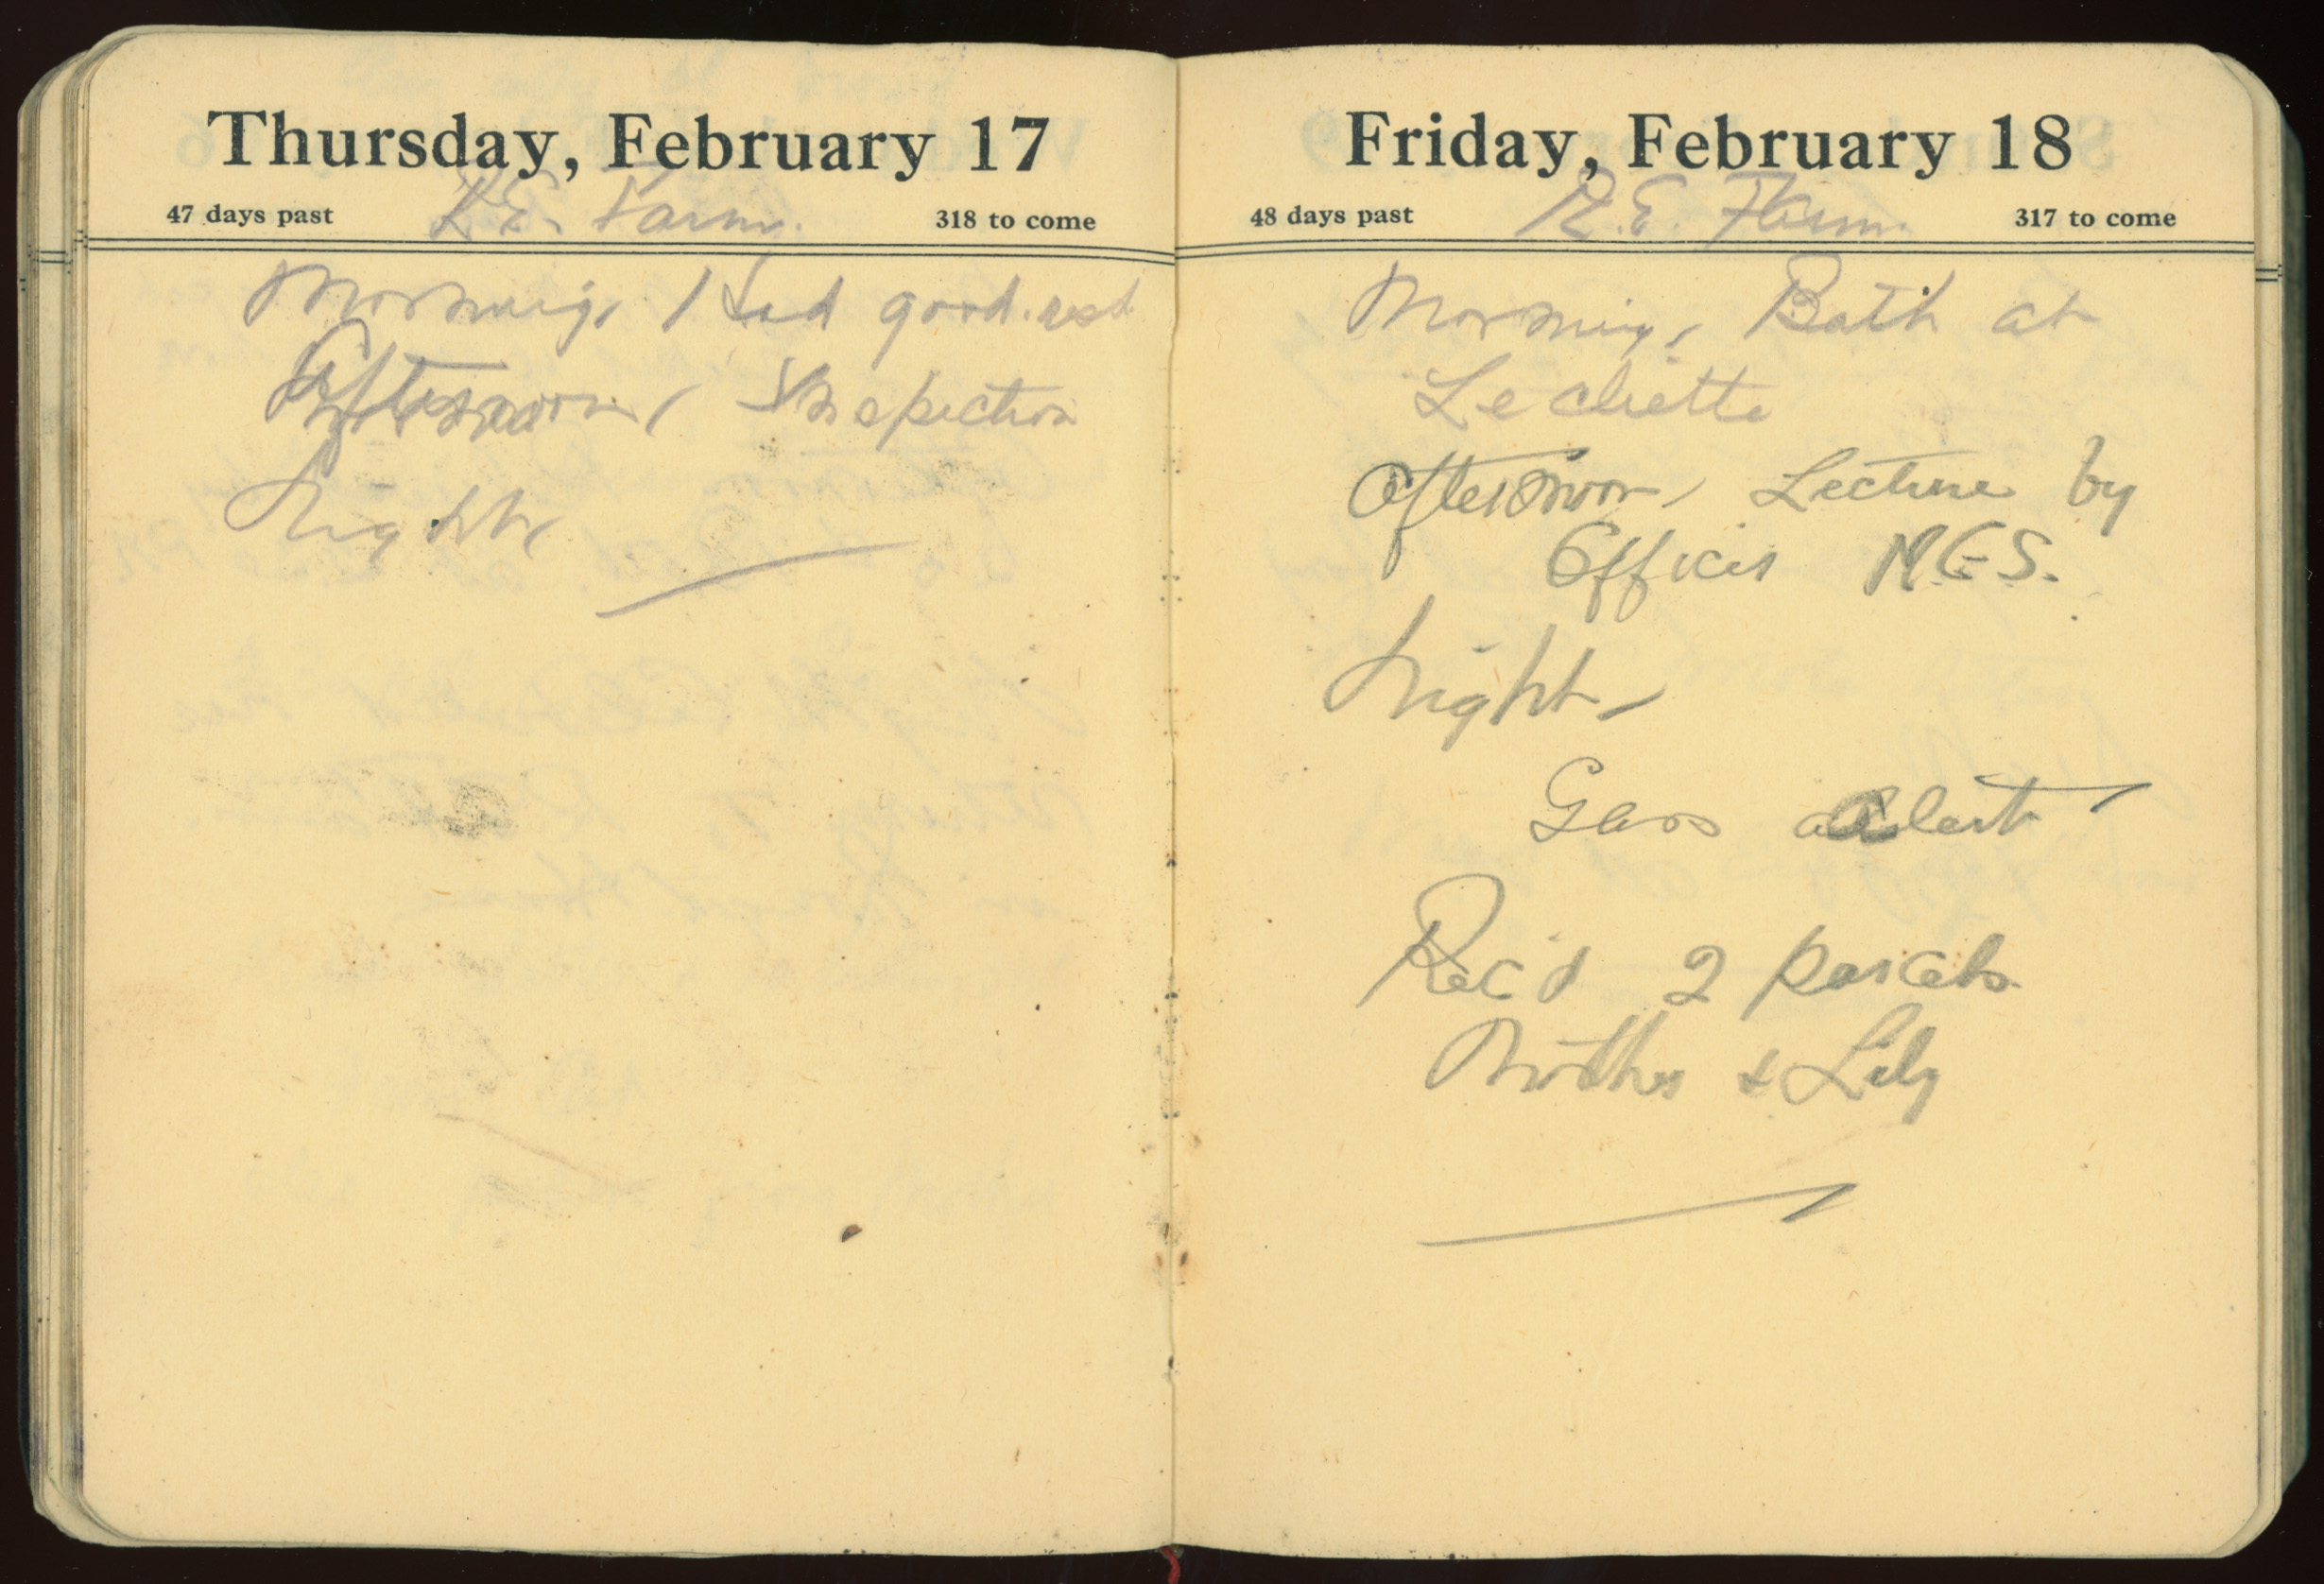 Thursday, February 17
47 days past R.E. Farm. 318 to come
Morning, Had good rest
Afternoon, Inspection
Night,
Friday, February 18
48 days past R.E. Farm. 317 to come
Morning, Bath at
Afternoon, Lecture by
Officer
Night,
Gass alert
Rec'd 2 parcels
Mother & Lily